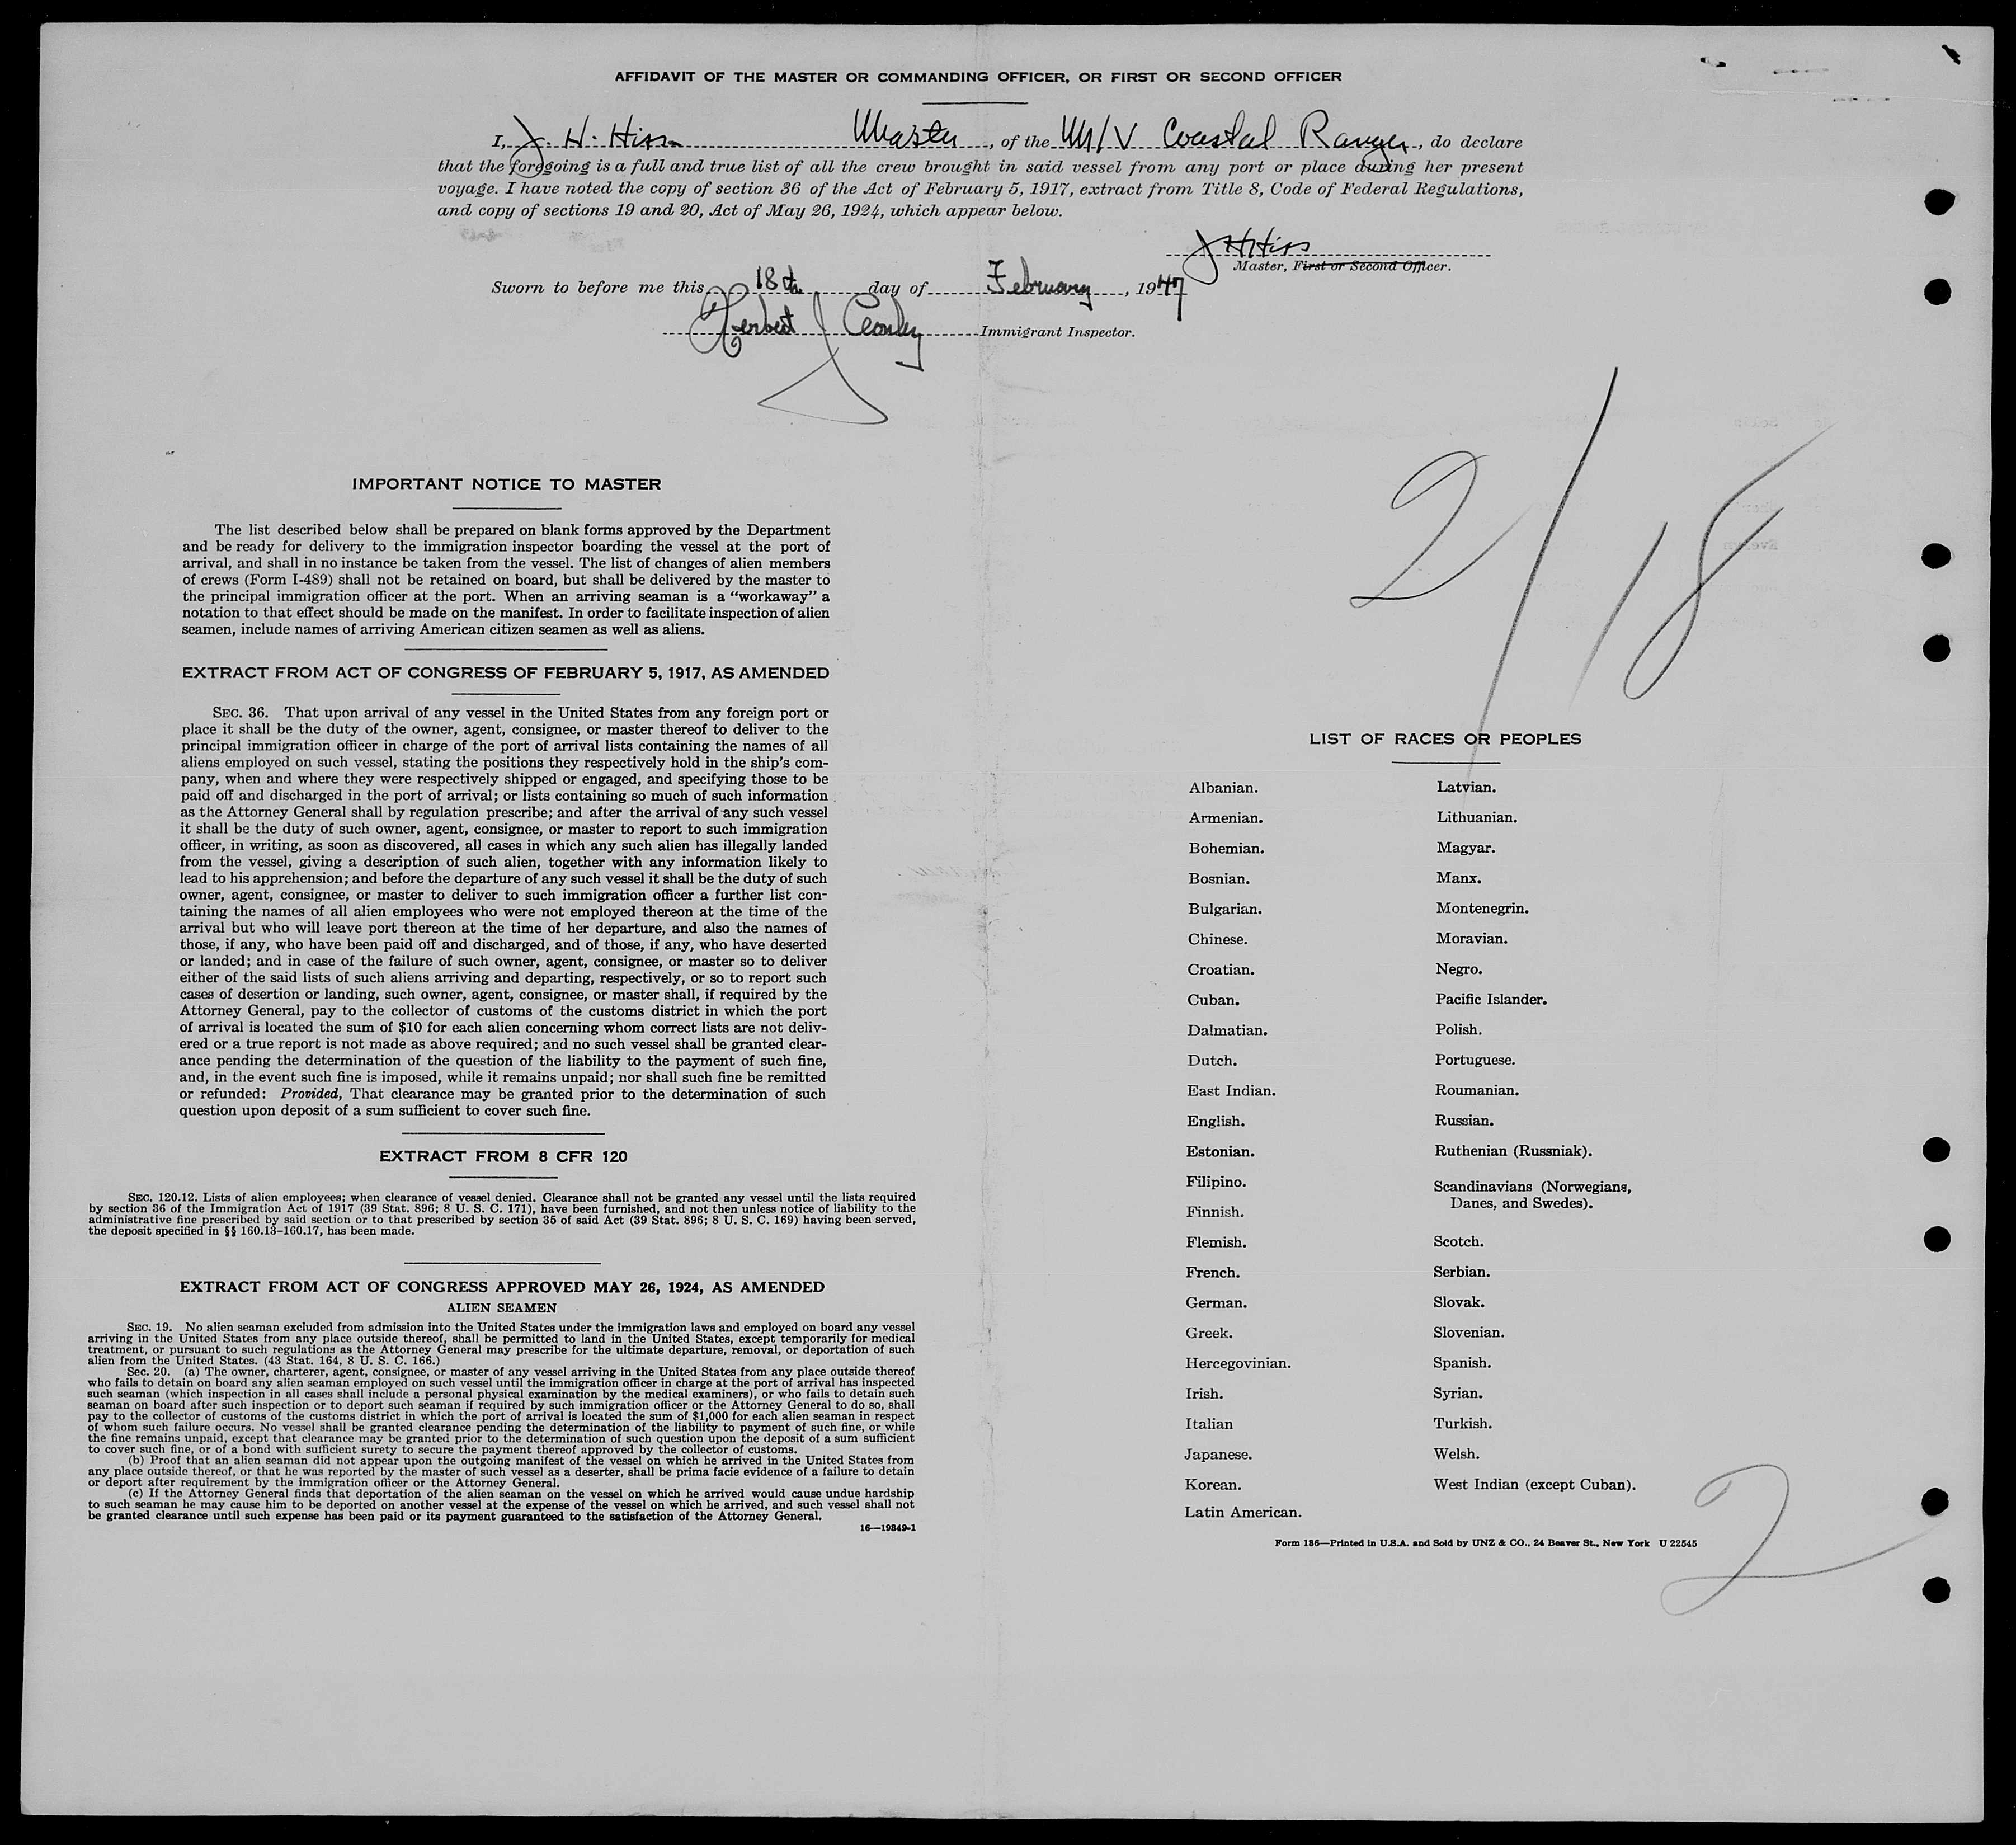 AFFIDAVIT OF THE MASTER OR COMMANDING OFFICER, OR FIRST OR SECOND OFFICER
I, J. H. Hiss Master, of the M/V Coastal Ranger, do declare
that the foregoing is a full and true list of all the crew brought in said vessel from any port or place during her present
voyage. I have noted the copy of section 36 of the Act of February 5, 1917, extract from Title 8, Code of Federal Regulations,
and copy of sections 19 and 20, Act of May 26, 1924, which appear below.
J H Hiss
Master, First or Second Officer.
Sworn to before me this 18th day of February, 1947
Herbert J Immigrant Inspector.
2/18
IMPORTANT NOTICE TO MASTER
The list described below shall be prepared on blank forms approved by the Department
and be ready for delivery to the immigration inspector boarding the vessel at the port of
arrival, and shall in no instance be taken from the vessel. The list of changes of alien members
of crews (Form I-489) shall not be retained on board, but shall be delivered by the master to
the principal immigration officer at the port. When an arriving seaman is a “workaway” a
notation to that effect should be made on the manifest. In order to facilitate inspection of alien
seamen, include names of arriving American citizen seamen as well as aliens.
EXTRACT FROM ACT OF CONGRESS OF FEBRUARY 5, 1917, AS AMENDED
SEC. 36. That upon arrival of any vessel in the United States from any foreign port or
place it shall be the duty of the owner, agent, consignee, or master thereof to deliver to the
principal immigration officer in charge of the port of arrival lists containing the names of all
aliens employed on such vessel, stating the positions they respectively hold in the ship's com-
pany, when and where they were respectively shipped or engaged, and specifying those to be
paid off and discharged in the port of arrival; or lists containing so much of such information
as the Attorney General shall by regulation prescribe; and after the arrival of any such vessel
it shall be the duty of such owner, agent, consignee, or master to report to such immigration
officer, in writing, as soon as discovered, all cases in which any such alien has illegally landed
from the vessel, giving a description of such alien, together with any information likely to
lead to his apprehension; and before the departure of any such vessel it shall be the duty of such
owner, agent, consignee, or master to deliver to such immigration officer a further list con-
taining the names of all alien employees who were not employed thereon at the time of the
arrival but who will leave port thereon at the time of her departure, and also the names of
those, if any, who have been paid off and discharged, and of those, if any, who have deserted
or landed; and in case of the failure of such owner, agent, consignee, or master so to deliver
either of the said lists of such aliens arriving and departing, respectively, or so to report such
cases of desertion or landing, such owner, agent, consignee, or master shall, if required by the
Attorney General, pay to the collector of customs of the customs district in which the port
of arrival is located the sum of $10 for each alien concerning whom correct lists are not deliv-
ered or a true report is not made as above required; and no such vessel shall be granted clear-
ance pending the determination of the question of the liability to the payment of such fine,
and, in the event such fine is imposed, while it remains unpaid; nor shall such fine be remitted
or refunded: Provided, That clearance may be granted prior to the determination of such
question upon deposit of a sum sufficient to cover such fine.
EXTRACT FROM 8 CFR 120
SEC. 120.12. Lists of alien employees; when clearance of vessel denied. Clearance shall not be granted any vessel until the lists required
by section 36 of the Immigration Act of 1917 (39 Stat. 896; 8 U. S. C. 171), have been furnished, and not then unless notice of liability to the
administrative fine prescribed by said section or to that prescribed by section 35 of said Act (39 Stat. 896; 8 U. S. C. 169) having been served,
the deposit specified in §§ 160.13–160.17, has been made.
EXTRACT FROM ACT OF CONGRESS APPROVED MAY 26, 1924, AS AMENDED
ALIEN SEAMEN
SEC. 19. No alien seaman excluded from admission into the United States under the immigration laws and employed on board any vessel
arriving in the United States from any place outside thereof, shall be permitted to land in the United States, except temporarily for medical
treatment, or pursuant to such regulations as the Attorney General may prescribe for the ultimate departure, removal, or deportation of such
alien from the United States. (43 Stat. 164, 8 U. S. C. 166.)
Sec. 20. (a) The owner, charterer, agent, consignee, or master of any vessel arriving in the United States from any place outside thereof
who fails to detain on board any alien seaman employed on such vessel until the immigration officer in charge at the port of arrival has inspected
such seaman (which inspection in all cases shall include a personal physical examination by the medical examiners), or who fails to detain such
seaman on board after such inspection or to deport such seaman if required by such immigration officer or the Attorney General to do so, shall
pay to the collector of customs of the customs district in which the port of arrival is located the sum of $1,000 for each alien seaman in respect
of whom such failure occurs. No vessel shall be granted clearance pending the determination of the liability to payment of such fine, or while
the fine remains unpaid, except that clearance may be granted prior to the determination of such question upon the deposit of a sum sufficient
to cover such fine, or of a bond with sufficient surety to secure the payment thereof approved by the collector of customs.
(b) Proof that an alien seaman did not appear upon the outgoing manifest of the vessel on which he arrived in the United States from
any place outside thereof, or that he was reported by the master of such vessel as a deserter, shall be prima facie evidence of a failure to detain
or deport after requirement by the immigration officer or the Attorney General.
(c) If the Attorney General finds that deportation of the alien seaman on the vessel on which he arrived would cause undue hardship
to such seaman he may cause him to be deported on another vessel at the expense of the vessel on which he arrived, and such vessel shall not
be granted clearance until such expense has been paid or its payment guaranteed to the satisfaction of the Attorney General.
16—19849-1
LIST OF RACES OR PEOPLES
Albanian.
Armenian.
Bohemian.
Bosnian.
Bulgarian.
Chinese.
Croatian.
Cuban.
Dalmatian.
Dutch.
East Indian.
English.
Estonian.
Filipino.
Finnish.
Flemish.
French.
German.
Greek.
Hercegovinian.
Irish.
Italian
Japanese.
Korean.
Latin American.
Latvian.
Lithuanian.
Magyar.
Manx.
Montenegrin.
Moravian.
Negro.
Pacific Islander.
Polish.
Portuguese.
Roumanian.
Russian.
Ruthenian (Russniak).
Scandinavians (Norwegians,
Danes, and Swedes).
Scotch.
Serbian.
Slovak.
Slovenian.
Spanish.
Syrian.
Turkish.
Welsh.
West Indian (except Cuban).
2
Form 136—Printed in U.S.A. and Sold by UNZ & CO., 24 Beaver St., New York U 22545